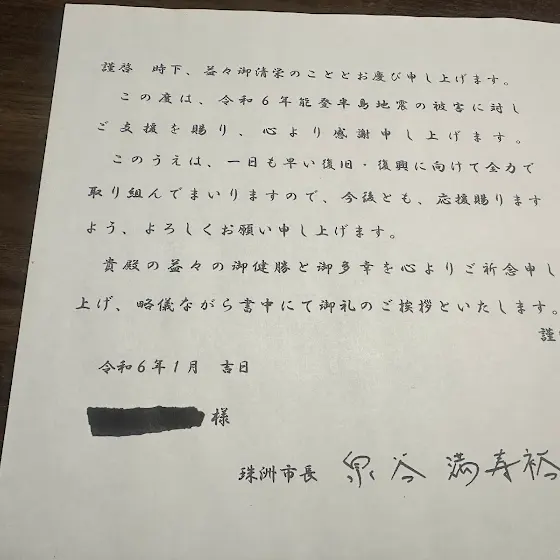 謹啓　時下、益々御清栄のこととお慶び申し上げます。
この度は、令和６年能登半島地震の被害に対し
ご支援を賜り、心より感謝申し上げます。
このうえは、一日も早い復旧・復興に向けて全力で
取り組んでまいりますので、今後とも、応援賜ります
よう、よろしくお願い申し上げます。
貴殿の益々の御健勝と御多幸を心よりご祈念申し
上げ、略儀ながら書中にて御礼のご挨拶といたします。
謹
令和６年１月　吉日
様
珠洲市長　泉谷満寿裕